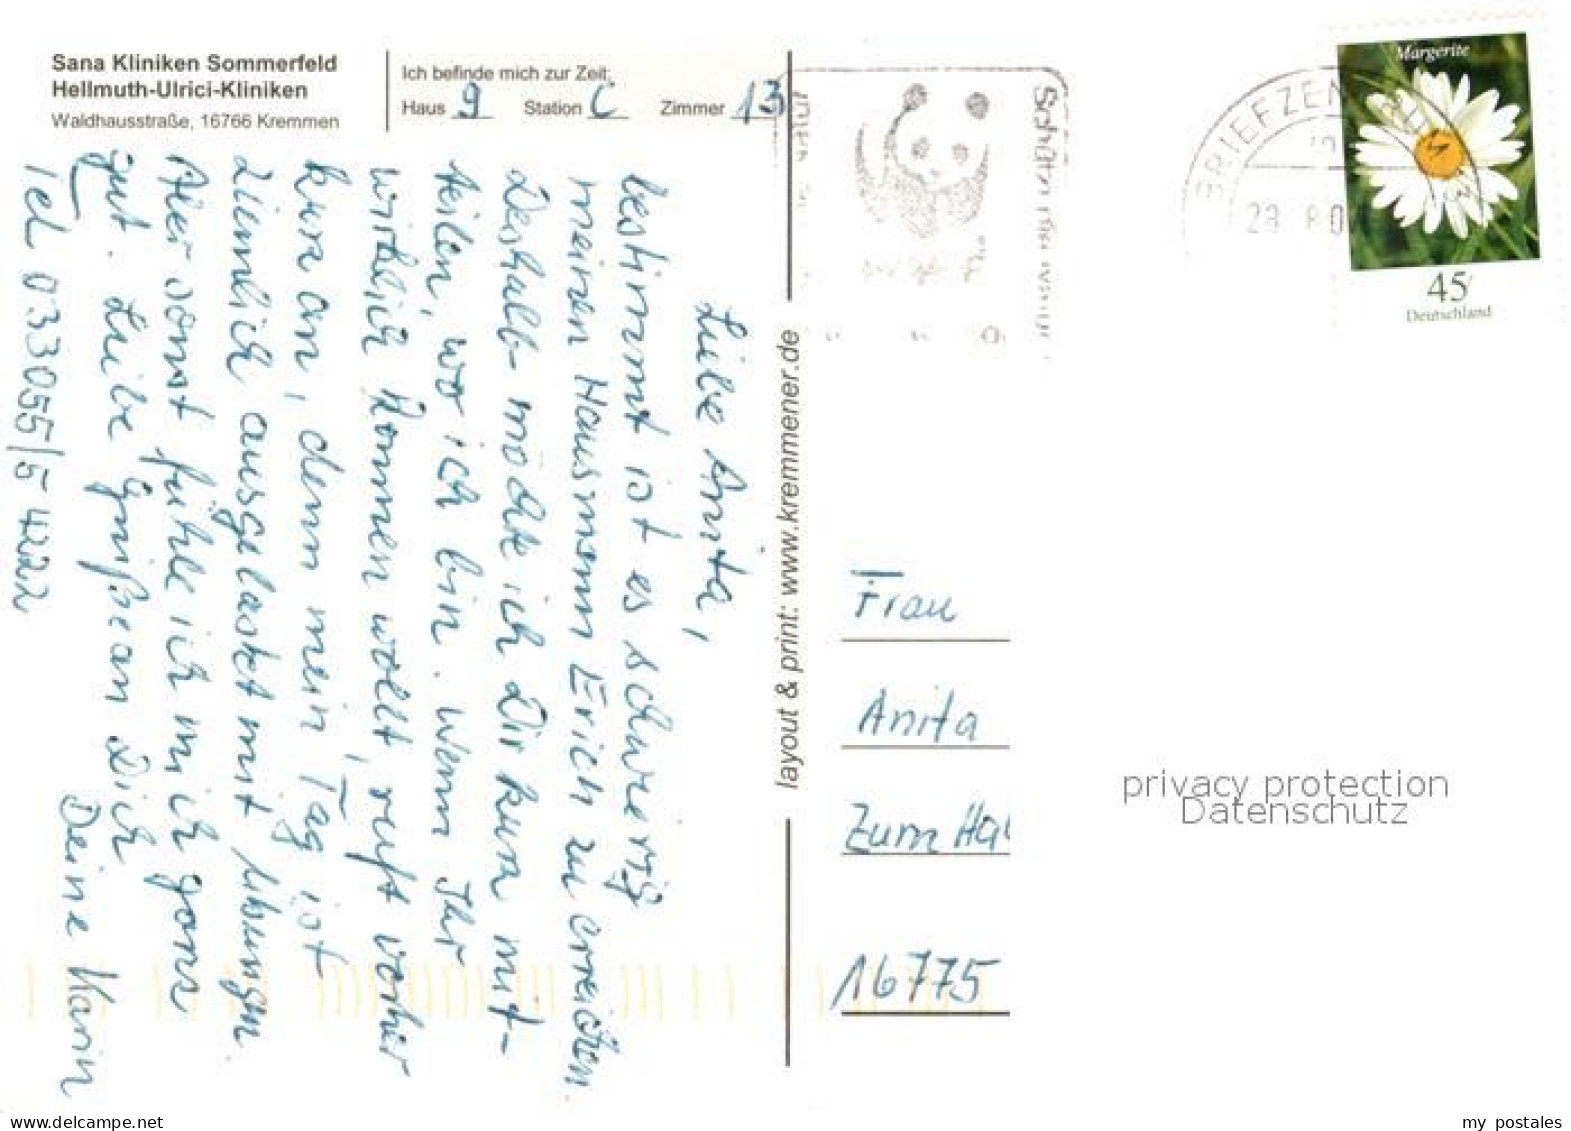 Sana Kliniken Sommerfeld
Hellmuth-Ulrici-Kliniken
Waldhausstraße, 16766 Kremmen
Ich befinde mich zur Zeit:
Haus 9 Station C Zimmer 13
Liebe Anita,
bestimmt ist es schwierig
meinen Hausmann Erich zu erreichen.
Deshalb möchte ich Dir kurz mit-
teilen, wo ich bin. Wenn Ihr
wirklich kommen wollt, ruft vorher
kurz an, denn mein Tag ist
ziemlich ausgelastet mit Übungen.
Aber sonst fühle ich mich ganz
gut. Liebe Grüße an Dich
Deine Karin
Tel 033055/5 4222
layout & print: www.kremmener.de
BRIEFZEN
Margerite
45
Deutschland
Frau
Anita
Zum Ha
16775
privacy protection
Datenschutz
www.delcampe.net
my_postales